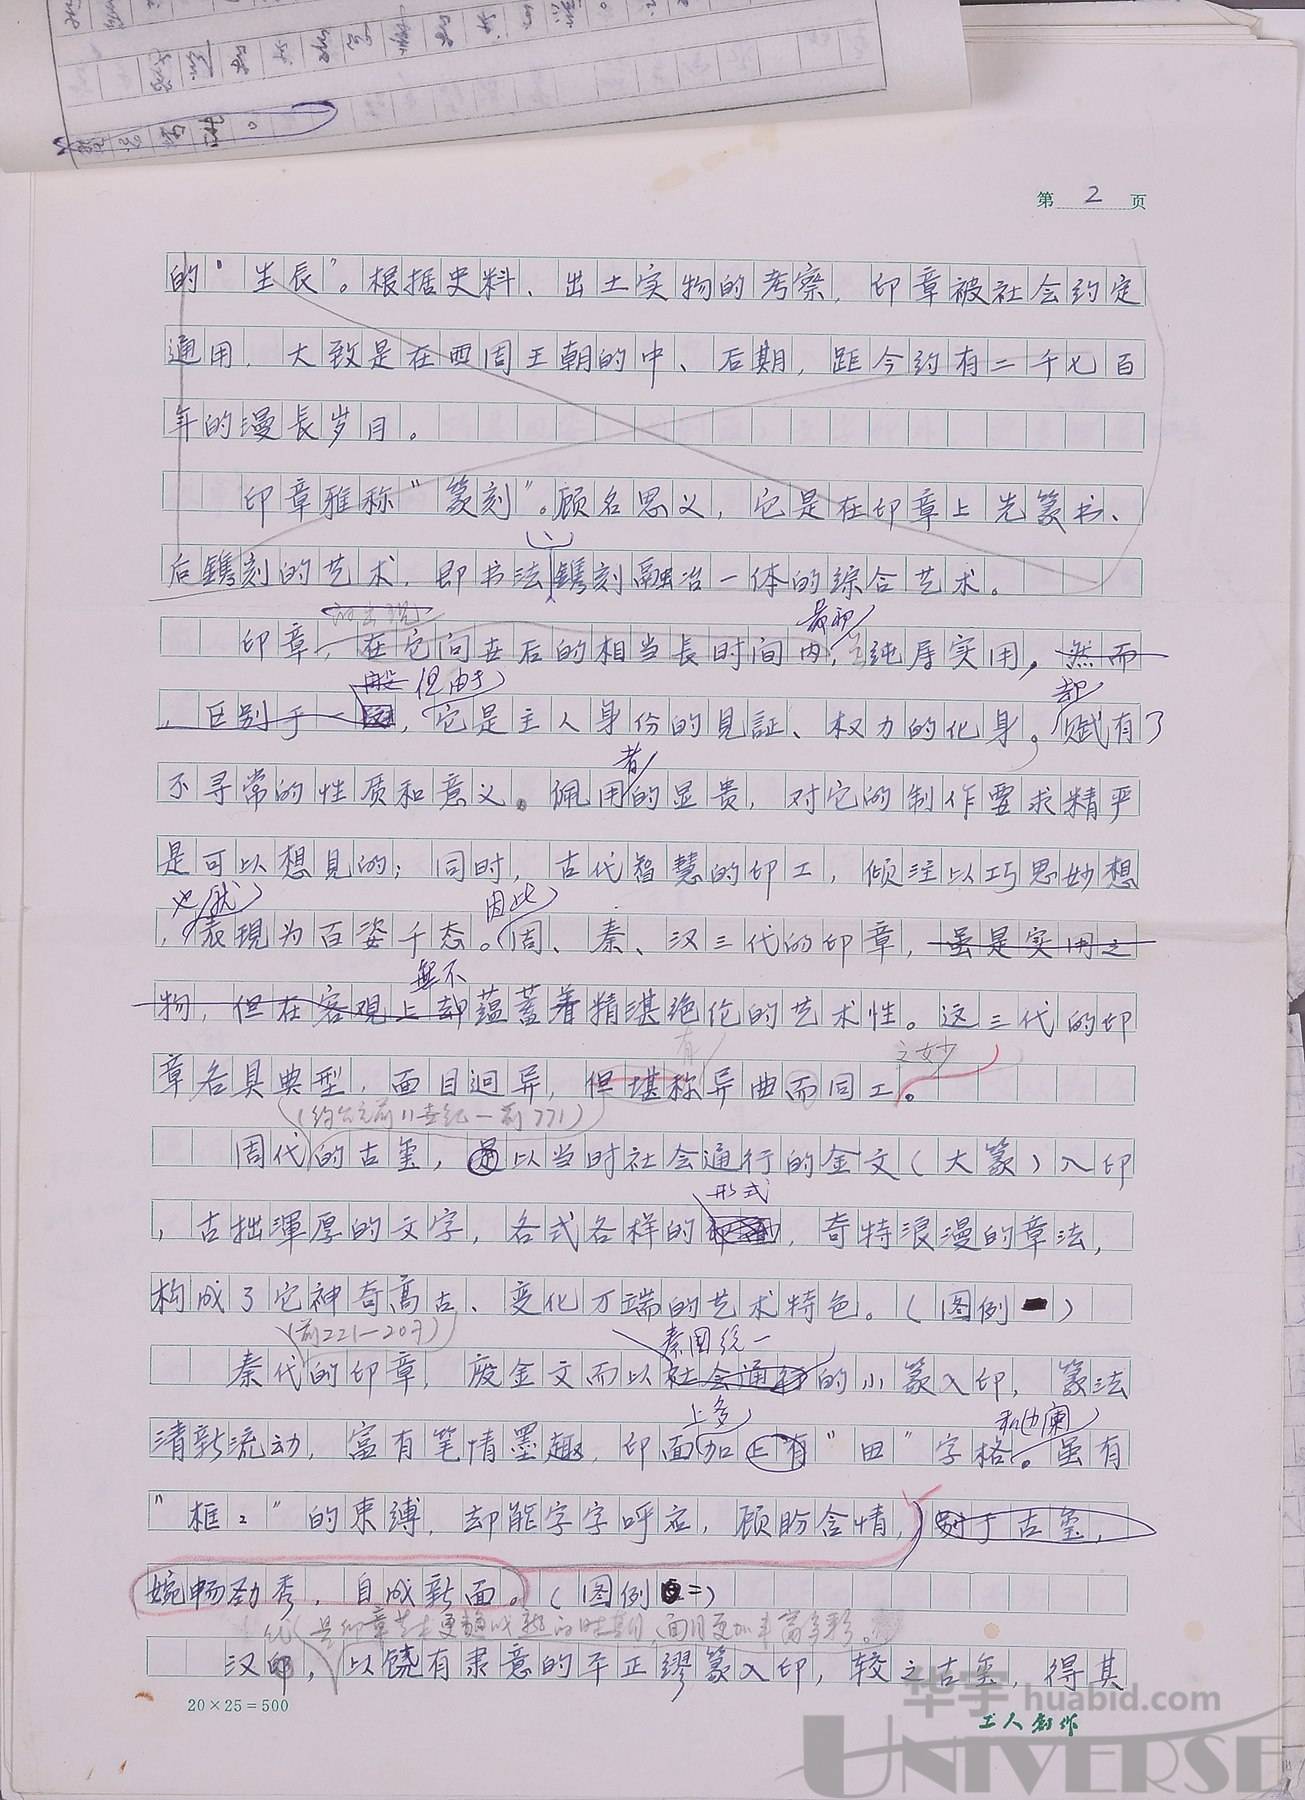 第 2 页
的“生辰”。根据史料、出土实物的考察，印章被社会约定
通用，大致是在西周王朝的中、后期，距今约有二千七百
年的漫長岁月。
印章雅称“篆刻”。顾名思义，它是在印章上先篆书、
后鐫刻的艺术，即书法、鐫刻融冶一体的综合艺术。
初出现
最初
印章，在它问世后的相当長时间内，纯属实用，然而
般 但由于
却
，区别于一，它是主人身份的見証、权力的化身。赋有了
者
不寻常的性质和意义。佩用的显贵，对它的制作要求精严
是可以想見的；同时，古代智慧的印工，倾注以巧思妙想
也就
因此
，表現为百姿千态。周、秦、汉三代的印章，虽是实用之
無不
物，但在客观上却蕴蓄着精湛绝伦的艺术性。这三代的印
有
之妙
章各具典型，面目迥异，但堪称异曲而同工。
(约公元前11世纪—前771)
周代的古玺，是以当时社会通行的金文(大篆)入印
形式
，古拙渾厚的文字，各式各样的，奇特浪漫的章法，
构成了它神奇高古、变化万端的艺术特色。(图例一)
(前221—207)
秦国统一
秦代的印章，废金文而以社会通行的小篆入印，篆法
上多
和边阑
清新流动，富有笔情墨趣，印面加上有“田”字格。虽有
“框：”的束缚，却能字字呼应，顾盼含情，别于古玺，
婉畅劲秀，自成新面。(图例二)
是印章艺术更趋成熟的时期，面目更加丰富多彩。
汉印，以饶有隶意的平正繆篆入印，较之古玺，得其
20×25=500
工人创作
华宇 huabid.com
UNIVERSE